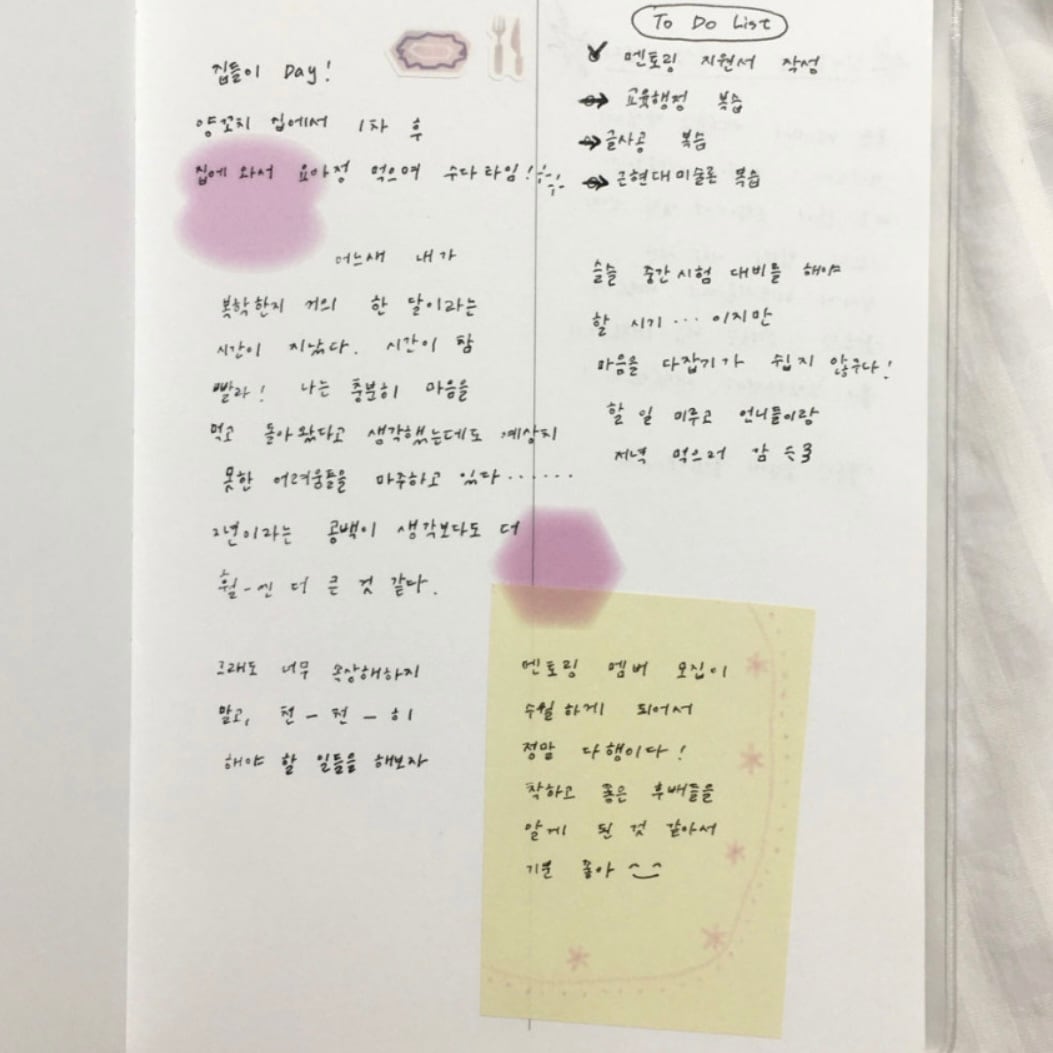 집들이 Day!
양꼬치 집에서 1차 후
집에 와서 요아정 먹으며 수다타임!
어느새 내가
복학한지 거의 한 달이라는
시간이 지났다. 시간이 참
빨라! 나는 충분히 마음을
먹고 돌아왔다고 생각했는데도 예상치
못한 어려움들을 마주하고 있다......
2년이라는 공백이 생각보다도 더
훨-씬 더 큰 것 같다.
그래도 너무 속상해하지
말고, 천-천-히
해야 할 일들을 해보자
To Do List
멘토링 지원서 작성
교육행정 복습
글사공 복습
근현대미술론 복습
슬슬 중간시험 대비를 해야
할 시기... 이지만
마음을 다잡기가 쉽지 않구나!
할 일 미루고 언니들이랑
저녁 먹으러 감
멘토링 멤버 모집이
수월하게 되어서
정말 다행이다!
착하고 좋은 후배들을
알게 된 것 같아서
기분 좋아 ^_^